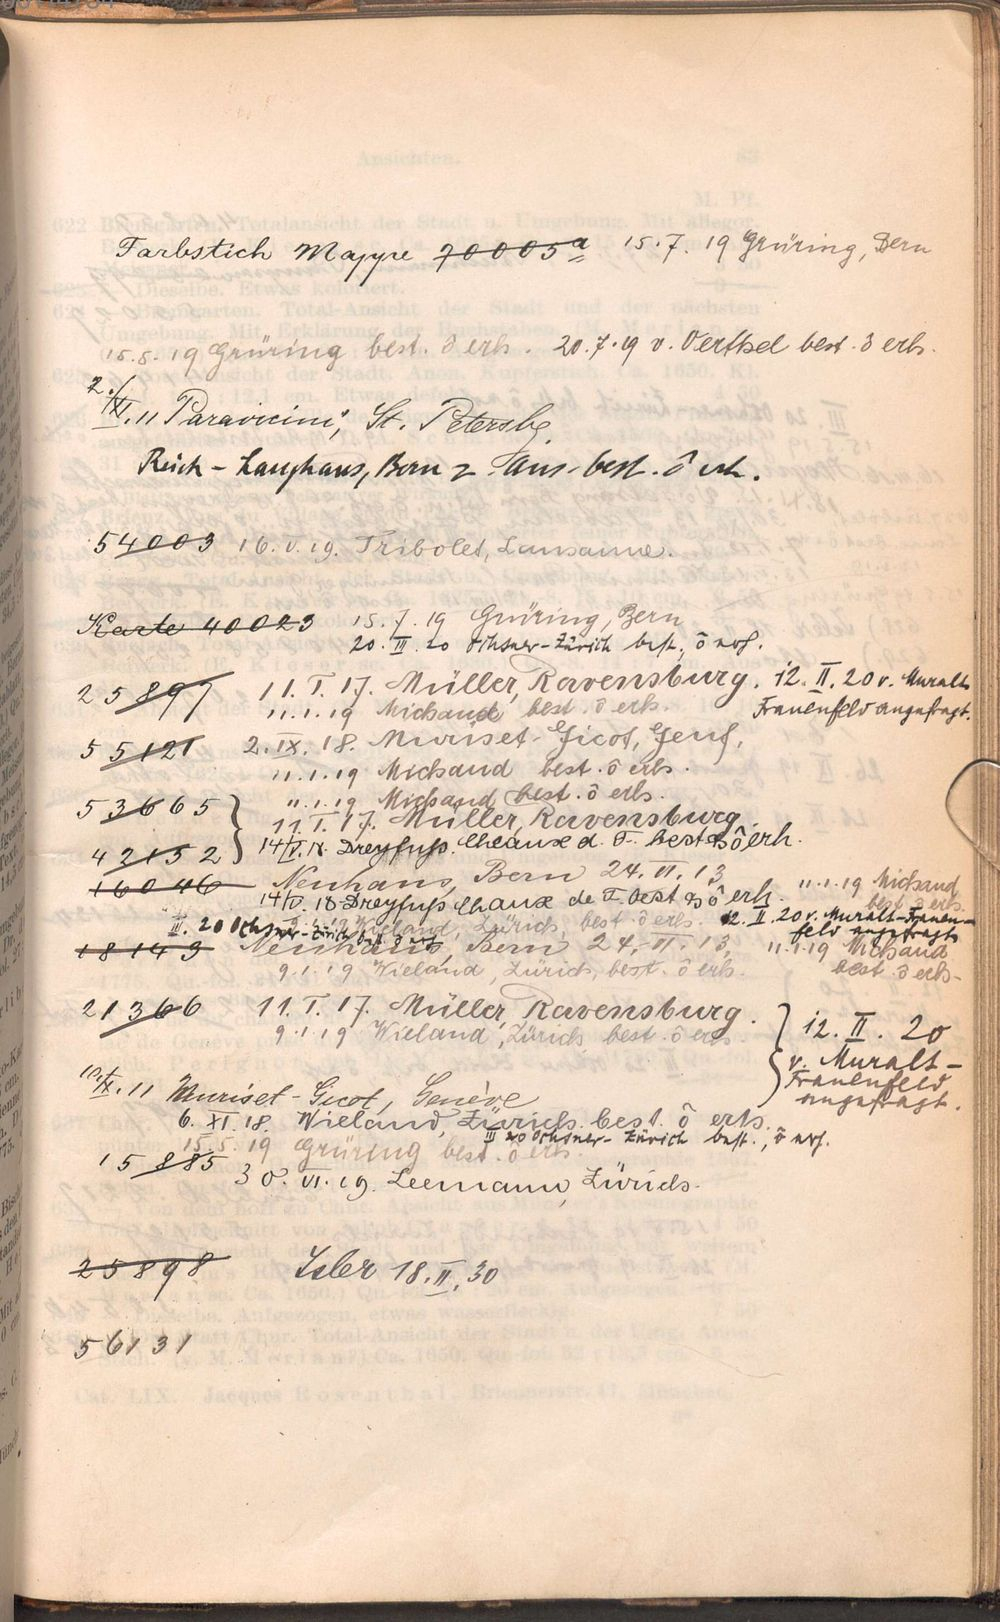 Farbstich Mappe 70005a 15.7.19 Grüring, Bern
15.5.19 Grüring best. ō erh. 20.7.19 v. Oerthel best. ō erh.
2./XI.11 Paravicini, St. Petersbg.
Reich-Langhaus, Bern 2 best. ō erh.
54003 16.V.19. Tribolet, Lausanne.
Karte 40023 15.7.19 Grüring, Bern
20.III.20 Ochsner-Zürich best., ō erh.
25897 11.I.17. Müller, Ravensburg. 12.II.20 v. Muralt
11.1.19 Michaud best. ō erh. Frauenfeld angefragt.
55121 2.IX.18. Muriset-Gicot, Genf,
11.1.19 Michaud best. ō erh.
53665 } 11.1.19 Michaud best. ō erh.
11.I.17. Müller, Ravensburg.
42152 14/V.18 Dreyfuß. Chaux d. F. best. ō erh.
16046 Neuhaus, Bern 24.VI.13 11.1.19 Michaud
14/V.18 Dreyfuß Chaux de F. best. ō erh. best. ō erh.
Wieland, Zürich, best. ō erh. 12.II.20 v. Muralt-Frauen-
III.20 Ochsner-Zürich best. ō erh. feld angefragt
18143 Neuhaus, Bern 24.VI.13, 11.1.19 Michaud
9.1.19 Wieland, Zürich, best. ō erh. best. ō erh.
21366 11.I.17. Müller, Ravensburg. } 12.II.20
9.1.19 Wieland, Zürich best. ō erh. v. Muralt-
Frauenfeld
angefragt.
10./X.11 Muriset-Gicot, Genève
6.XI.18. Wieland, Zürich best. ō erh.
III 20 Ochsner-Zürich best., ō erh.
15.5.19 Grüring best. ō erh.
15885 30.VI.19. Leemann, Zürich.
25898 Isler 18.II.30
56131